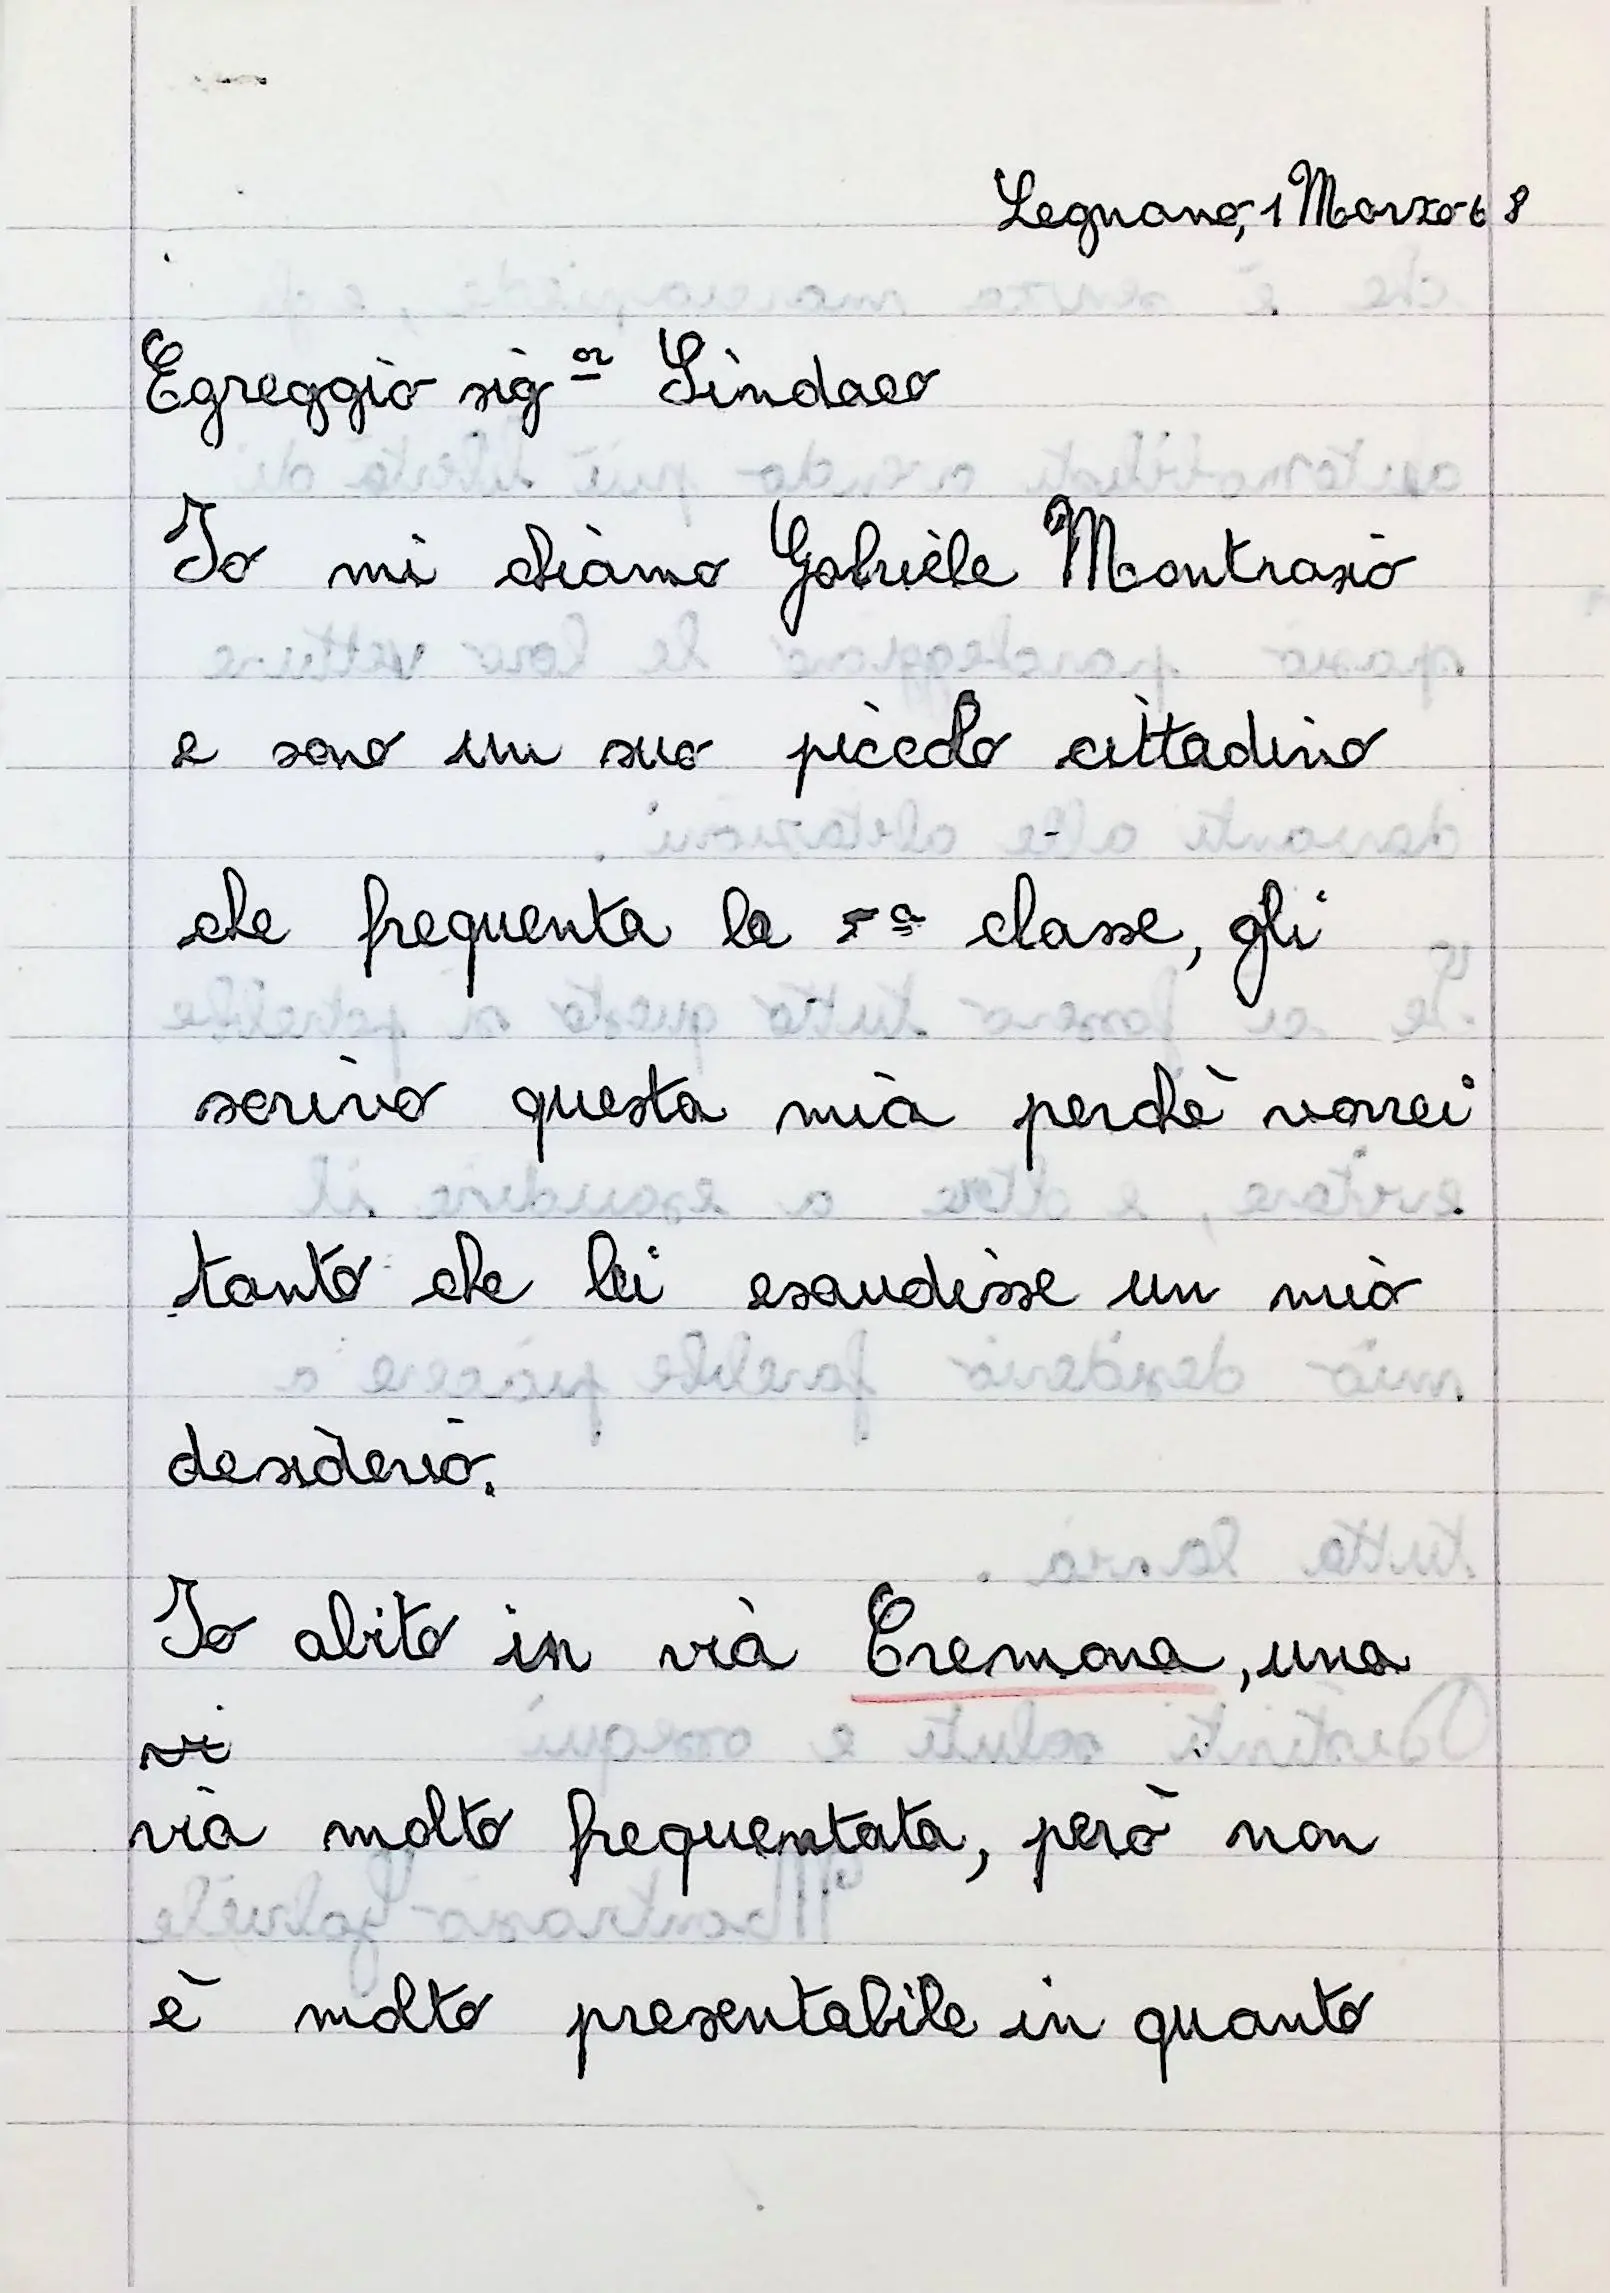 Legnano, 1 Marzo 68
Egreggio sig.or Sindaco
Io mi chiamo Gabriele Montrasio
e sono un suo piccolo cittadino
che frequenta la 5ª classe, gli
scrivo questa mia perchè vorrei
tanto che lei esaudisse un mio
desiderio.
Io abito in via Cremona, una
vi
via molto frequentata, però non
è molto presentabile in quanto